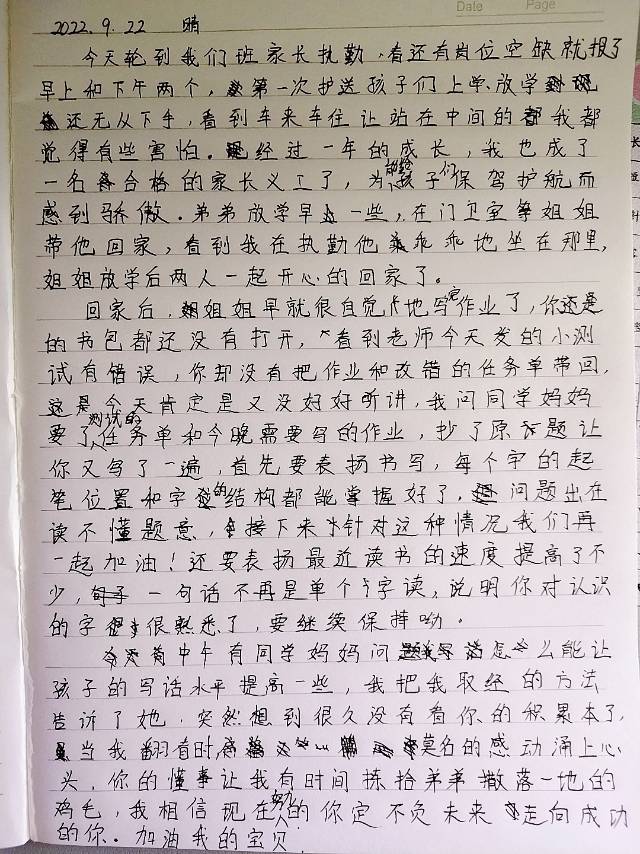 Date Page
2022.9.22 晴
今天轮到我们班家长执勤,看还有岗位空缺就报了
早上和下午两个,第一次护送孩子们上学放学
还无从下手,看到车来车往让站在中间的我都
觉得有些害怕。经过一年的成长,我也成了
一名合格的家长义工了,为孩子们保驾护航而
感到骄傲。弟弟放学早一些,在门卫室等姐姐
带他回家,看到我在执勤他乖乖地坐在那里,
姐姐放学后两人一起开心的回家了。
回家后,姐姐早就很自觉地写完作业了,你还是
的书包都还没有打开,看到老师今天发的小测
试有错误,你却没有把作业和改错的任务单带回,
这是今天肯定是又没好好听讲,我问同学妈妈
要了测试的任务单和今晚需要写的作业,抄了原题让
你又写了一遍,首先要表扬书写,每个字的起
笔位置和字的结构都能掌握好了,问题出在
读不懂题意,接下来针对这种情况我们再
一起加油!还要表扬最近读书的速度提高了不
少,一句话不再是单个字读,说明你对认识
的字很熟悉了,要继续保持呦。
中午有同学妈妈问怎么能让
孩子的写话水平提高一些,我把我取经的方法
告诉了她,突然想到很久没有看你的积累本了,
当我翻看时,莫名的感动涌上心
头,你的懂事让我有时间拣拾弟弟撒落一地的
鸡毛,我相信现在努力的你定不负未来走向成功
的你。加油我的宝贝